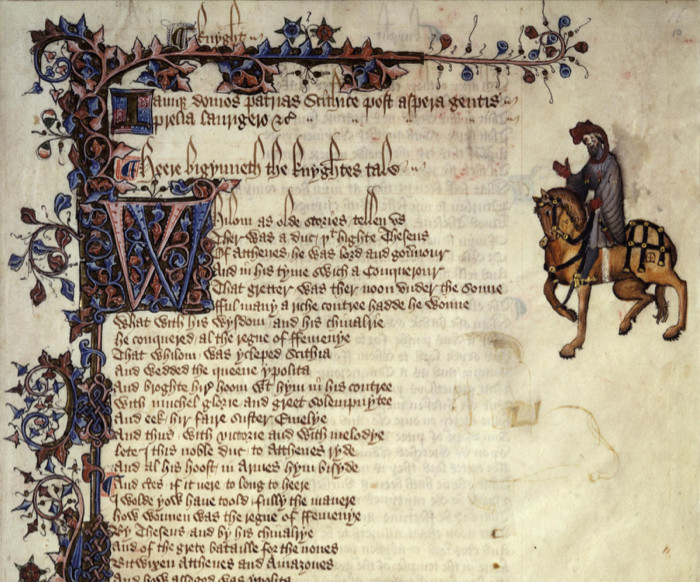 Knyght
Iamque domos patrias Scithice post aspera gentis
prelia laurigero &c
Heere bigynneth the knyghtes tale
Whilom as olde stories tellen us
Ther was a duc yt highte Theseus
Of Atthenes he was lord and gouernour
And in his tyme swich a Conquerour
That gretter was ther noon under the sonne
fful many a riche contree hadde he wonne
What with his wysdom and his chiualrie
he conquered al the regne of ffemenye
That whilom was ycleped Scithia
And wedded the queene ypolita
And broghte hir hoom wt hym in his contree
With muchel glorie and greet solempnytee
And eek hir faire suster Emelye
And thus with victorie and with melodye
lete I this noble duc to Atthenes ryde
And al his hoost in Armes hym bisyde
And certes if it nere to long to heere
I wolde yow haue toold fully the manere
how wonnen was the regne of ffemenye
By Theseus and by his chiualrye
And of the grete bataille for the nones
Bitwixen Atthenes and Amazones
And how asseged was ypolita